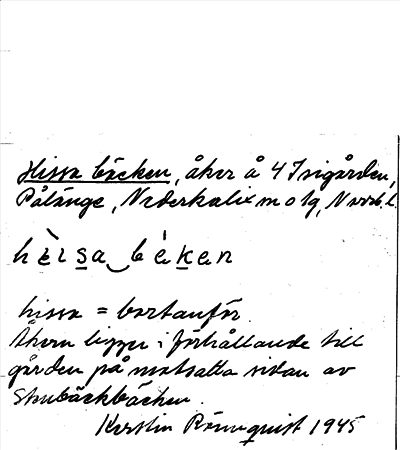 Hissa bäcken, åker å 4 Isigården,
Pålänge, Nederkalix m o lg, Norrb.l.
hèɪsa‿béken
hissa = bortanför.
Åkern ligger i förhållande till
gården på motsatta sidan av
Stubäckbäcken.
Kerstin Rönnquist 1945